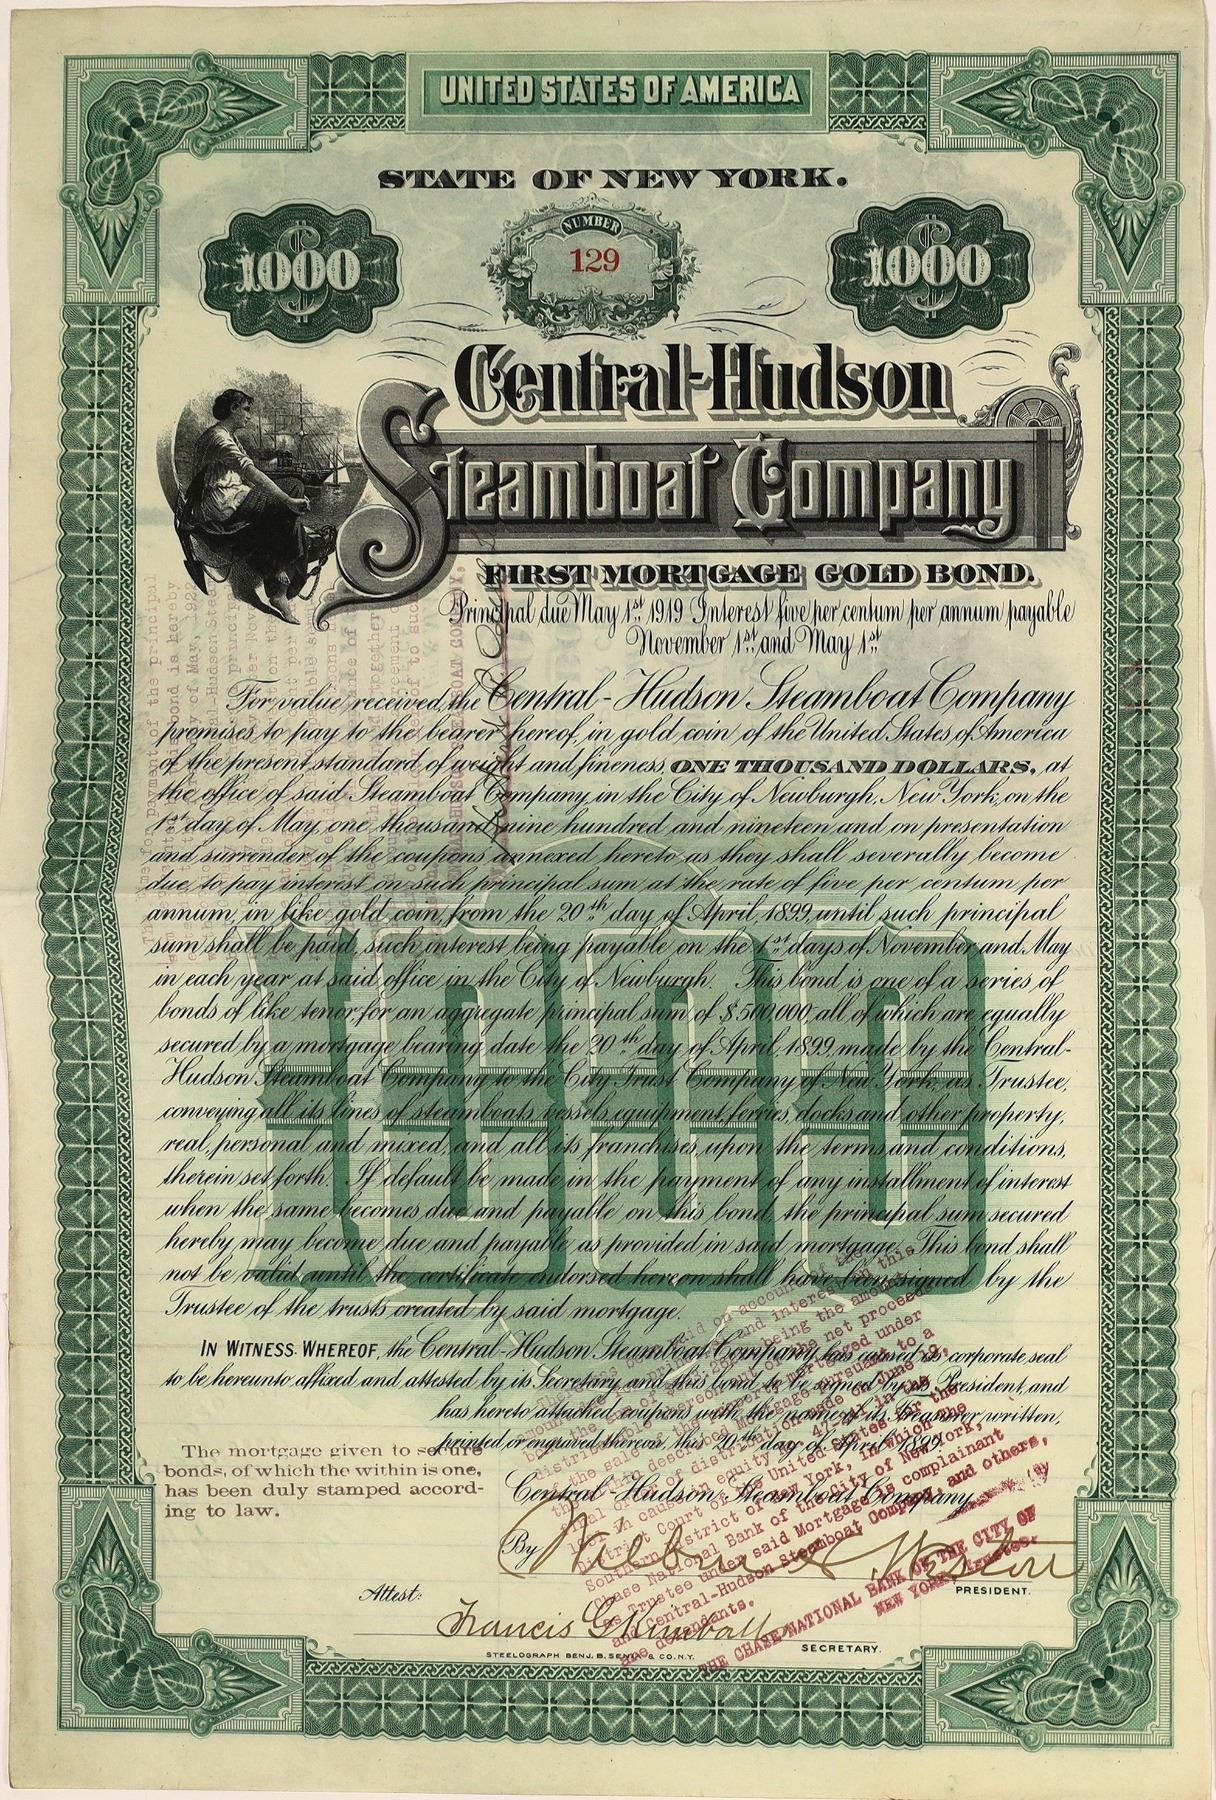 UNITED STATES OF AMERICA
STATE OF NEW YORK.
$1000
NUMBER
129
$1000
Central-Hudson
Steamboat Company
FIRST MORTGAGE GOLD BOND.
Principal due May 1st 1919 Interest five per centum per annum payable
November 1st and May 1st
For value received, the Central-Hudson Steamboat Company
promises to pay to the bearer hereof, in gold coin of the United States of America
of the present standard of weight and fineness, ONE THOUSAND DOLLARS, at
the office of said Steamboat Company, in the City of Newburgh, New York, on the
1st day of May, one thousand nine hundred and nineteen and on presentation
and surrender of the coupons annexed hereto as they shall severally become
due, to pay interest on such principal sum at the rate of five per centum per
annum, in like gold coin, from the 20th day of April, 1899, until such principal
sum shall be paid, such interest being payable on the 1st days of November and May
in each year at said office in the City of Newburgh. This bond is one of a series of
bonds of like tenor, for an aggregate principal sum of $500,000, all of which are equally
secured by a mortgage bearing date the 20th day of April, 1899, made by the Central-
Hudson Steamboat Company to the City Trust Company of New York, as Trustee,
conveying all its lines of steamboats, vessels, equipment, ferries, docks and other property,
real, personal and mixed, and all its franchises, upon the terms and conditions,
therein set forth. If default be made in the payment of any installment of interest
when the same becomes due and payable on this bond, the principal sum secured
hereby may become due and payable as provided in said mortgage. This bond shall
not be valid until the certificate endorsed hereon shall have been signed by the
Trustee of the trusts created by said mortgage.
IN WITNESS WHEREOF, the Central-Hudson Steamboat Company has caused its corporate seal
to be hereunto affixed and attested by its Secretary and this bond to be signed by its President, and
has hereto attached coupons with the name of its Treasurer written,
printed, or engraved thereon, this 20th day of April 1899.
The mortgage given to secure
bonds, of which the within is one,
has been duly stamped accord-
ing to law.
Central Hudson Steamboat Company
By Wilbur Weston
PRESIDENT.
Attest:
Francis G Kimball
SECRETARY.
STEELOGRAPH BENJ. B. & CO. N.Y.
net proceeds
mortgaged under
pursuant to a
made on June 12,
in equity 47-41 in the
District Court of the United States for the
Southern District of New York, in which The
Chase National Bank of the City of New York,
as Trustee under said Mortgage is complainant
and Central-Hudson Steamboat Company, and others,
are defendants.
THE CHASE NATIONAL BANK OF THE CITY OF
NEW YORK, Trustee.